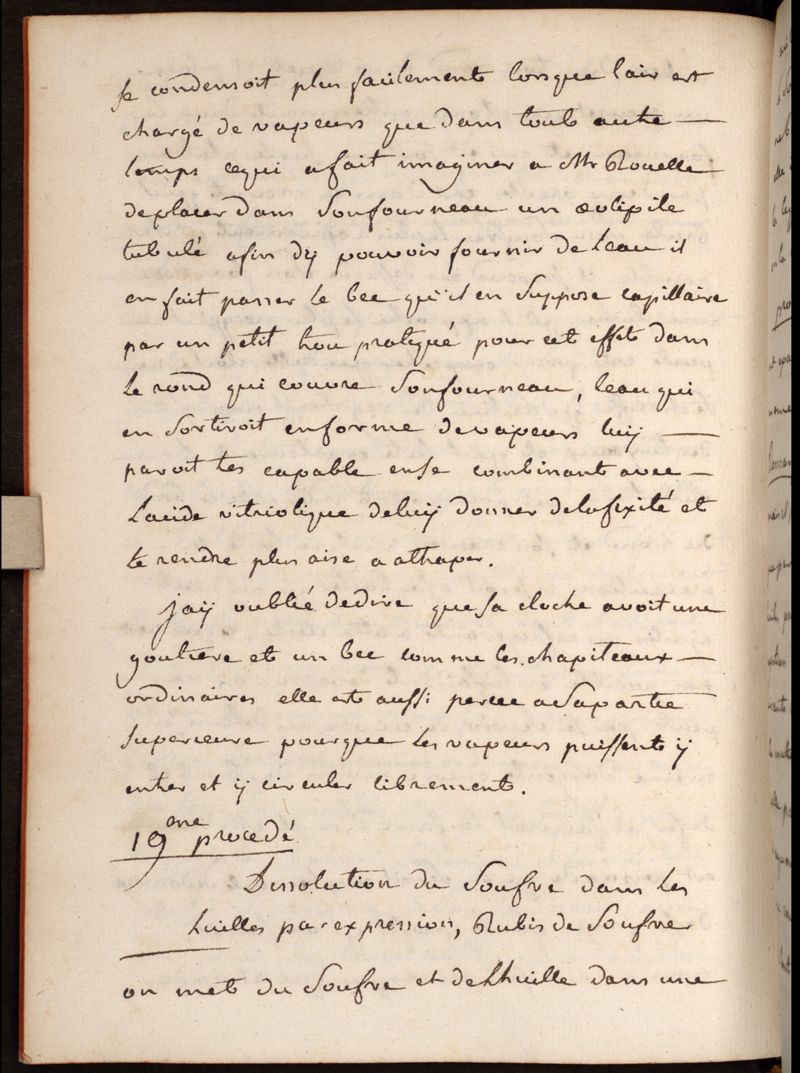 se condensoit plus facilement lorsque lair est
chargé de vapeurs que dans tout autre —
temps cequi afait imaginer a Mr Rouelle
deplacer dans Sonfourneau un æolipile
tubulé afin dÿ pouvoir fournir de Leau il
en fait passer le bec qu'il en Suppose capillaire
par un petit trou pratiqué pour cet effet dans
Le rond qui couvre Sonfourneau, leau qui
en Sortiroit enforme devapeurs luÿ —
paroit tes capable ense combinant avec —
Lacide vitriolique deluÿ donner delafixité et
le rendre plus aise a attraper.
jaÿ oublié dedire que sa cloche avoit une
goutiere et un bec comme les chapiteaux —
ordinaires elle est aussi percée a Sapartie
Superieure pourque les vapeurs puissent ÿ
entrer et ÿ circuler librement.
19eme procedé
Dissolution du Soufre dans les
huilles par expression, Rubis de Soufre
on met du Soufre et deLhuille dans une